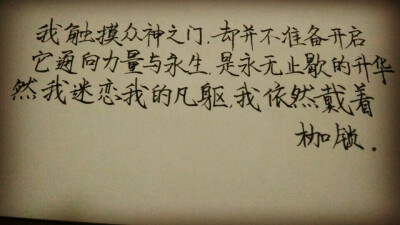 我触摸众神之门.却并不准备开启
它通向力量与永生.是永无止歇的升华
然我迷恋我的凡躯.我依然戴着
枷锁.